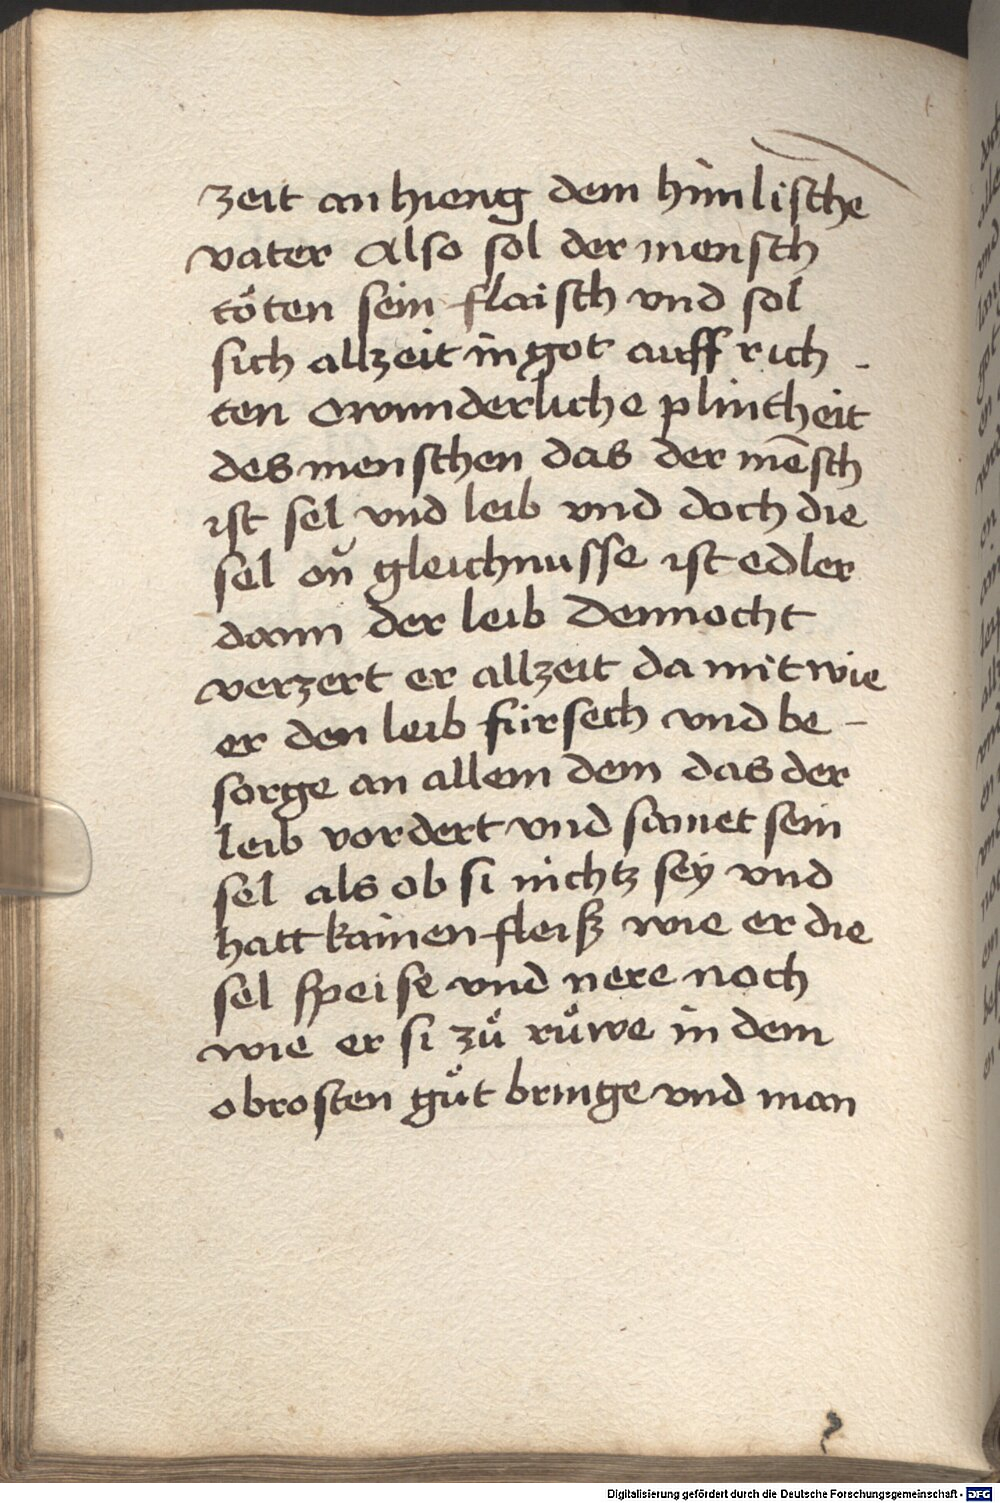 zeit an hieng dem himlische
vater Also sol der mensch
töten sein flaisch vnd sol
sich allzeit in got auff rich -
ten O wunderliche plintheit
des menschen das der mēsch
ist sel vnd leib vnd doch die
sel on gleichnusse ist edler
dann der leib Dennocht
verzert er allzeit da mit wie
er den leib fürsech vnd be -
sorge an allem dem das der
leib vordert vnd samet sein
sel als ob si nichtz sey vnd
hatt kainen fleiß wie er die
sel speise vnd nere noch
wie er si zuͦ ruͦwe in dem
obrosten guͦt bringe vnd man
Digitalisierung gefördert durch die Deutsche Forschungsgemeinschaft - DFG